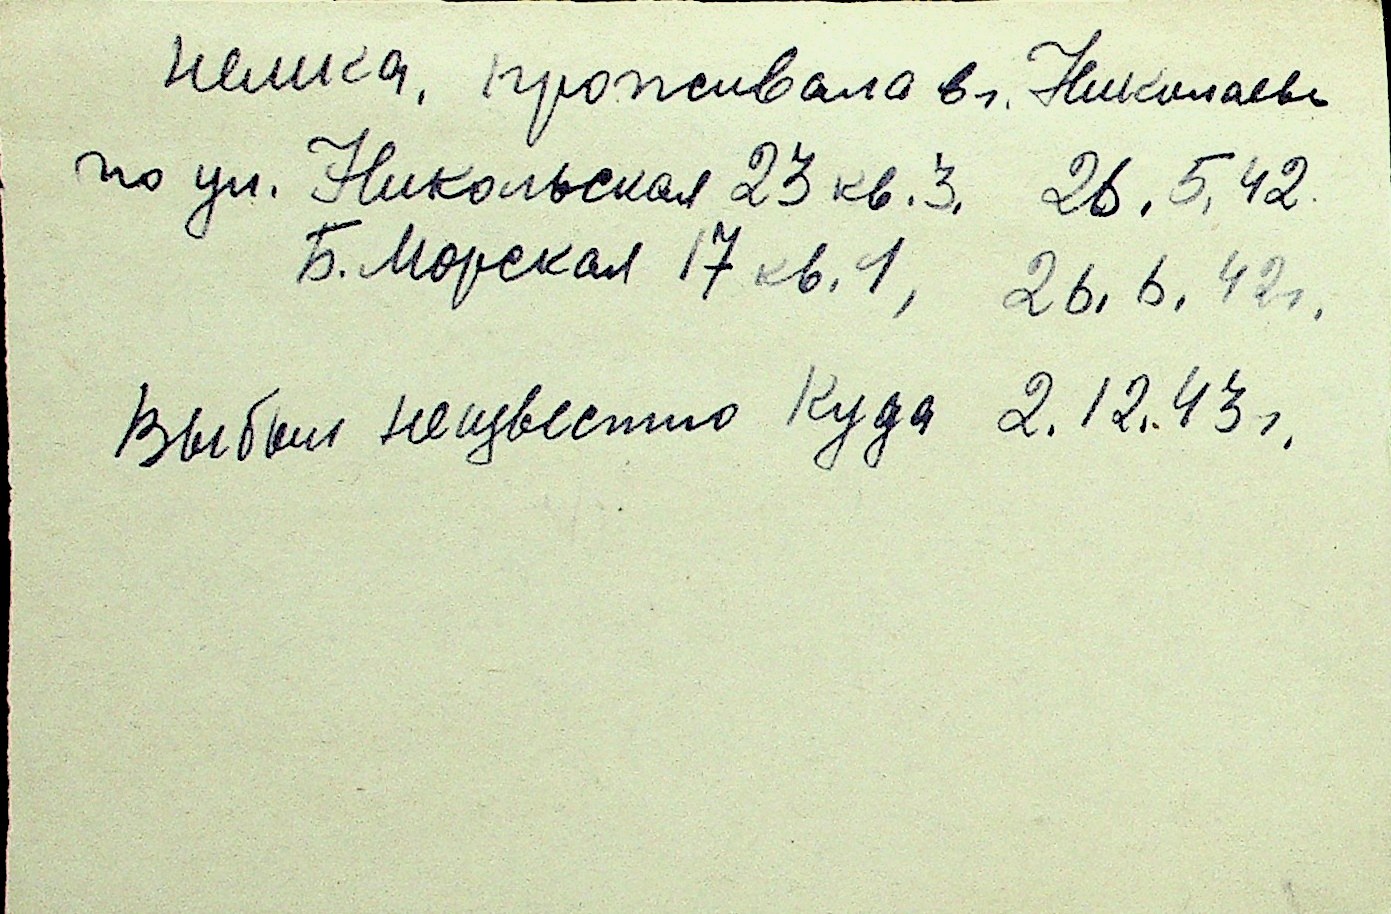 немка, проживала в г. Николаеве
по ул. Никольская 23 кв. 3. 26. 5. 42.
Б. Морская 17 кв. 1, 26. 6. 42 г.
Выбыл неизвестно куда 2. 12. 43 г.